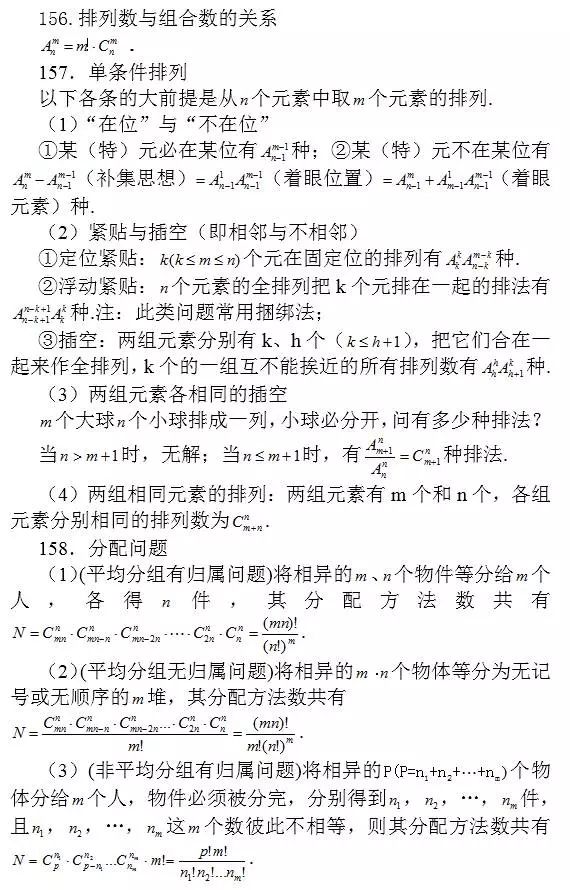 156.排列数与组合数的关系
$A_n^m = m! \cdot C_n^m$ .
157. 单条件排列
以下各条的大前提是从n个元素中取m个元素的排列.
(1)“在位”与“不在位”
①某（特）元必在某位有$A_{n-1}^{m-1}$种；②某（特）元不在某位有
$A_n^m - A_{n-1}^{m-1}$（补集思想）$= A_{n-1}^1 A_{n-1}^{m-1}$（着眼位置）$= A_{n-1}^m + A_{m-1}^1 A_{n-1}^{m-1}$（着眼
元素）种.
(2)紧贴与插空（即相邻与不相邻）
①定位紧贴：$k(k \leq m \leq n)$个元在固定位的排列有$A_k^k A_{n-k}^{m-k}$种.
②浮动紧贴：n个元素的全排列把k个元排在一起的排法有
$A_{n-k+1}^{n-k+1} A_k^k$种.注：此类问题常用捆绑法；
③插空：两组元素分别有k、h个（$k \leq h+1$），把它们合在一
起来作全排列,k个的一组互不能挨近的所有排列数有$A_h^h A_{h+1}^k$种.
(3)两组元素各相同的插空
m个大球n个小球排成一列,小球必分开,问有多少种排法?
当$n > m+1$时，无解；当$n \leq m+1$时，有$\frac{A_{m+1}^n}{A_n^n} = C_{m+1}^n$种排法.
(4)两组相同元素的排列：两组元素有m个和n个，各组
元素分别相同的排列数为$C_{m+n}^n$.
158. 分配问题
(1)(平均分组有归属问题)将相异的m、n个物件等分给m个
人，各得n件，其分配方法数共有
$N = C_{mn}^n \cdot C_{mn-n}^n \cdot C_{mn-2n}^n \cdot \cdots \cdot C_{2n}^n \cdot C_n^n = \frac{(mn)!}{(n!)^m}$.
(2)(平均分组无归属问题)将相异的m·n个物体等分为无记
号或无顺序的m堆，其分配方法数共有
$N = \frac{C_{mn}^n \cdot C_{mn-n}^n \cdot C_{mn-2n}^n \ldots \cdot C_{2n}^n \cdot C_n^n}{m!} = \frac{(mn)!}{m!(n!)^m}$.
(3)(非平均分组有归属问题)将相异的$P(P=n_1+n_2+\cdots+n_m)$个物
体分给m个人，物件必须被分完，分别得到$n_1$，$n_2$，…，$n_m$件，
且$n_1$，$n_2$，…，$n_m$这m个数彼此不相等，则其分配方法数共有
$N = C_p^{n_1} \cdot C_{p-n_1}^{n_2} \ldots C_{n_m}^{n_m} \cdot m! = \frac{p!m!}{n_1!n_2!\ldots n_m!}$.